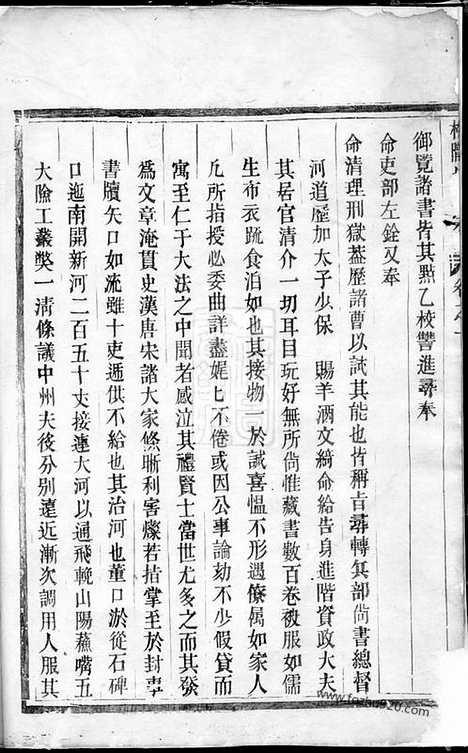 御覽諸書皆其點乙校讐進尋奉
命吏部左銓又奉
命清理刑獄葢歷諸曹以試其能也皆稱旨尋轉兵部尚書總督
河道歷加太子少保　賜羊酒文綺命給告身進階資政大夫
其居官清介一切耳目玩好無所尚惟藏書數百卷被服如儒
生布衣疏食泊如也其接物一於誠喜慍不形遇僚屬如家人
凡所指授必委曲詳盡娓〻不倦或因公事論劾不少假貸而
寓至仁于大法之中聞者感泣其禮賢士當世尤多之而其發
爲文章淹貫史漢唐宋諸大家條晰利害燦若指掌至於封事
書牘矢口如流雖十吏遞供不給也其治河也董口淤從石磚
口迤南開新河二百五十丈接連大河以通飛輓山陽蘓嘴五
大險工叢獘一清條議中州夫役分別遠近漸次調用人服其
www.fozhu920.com